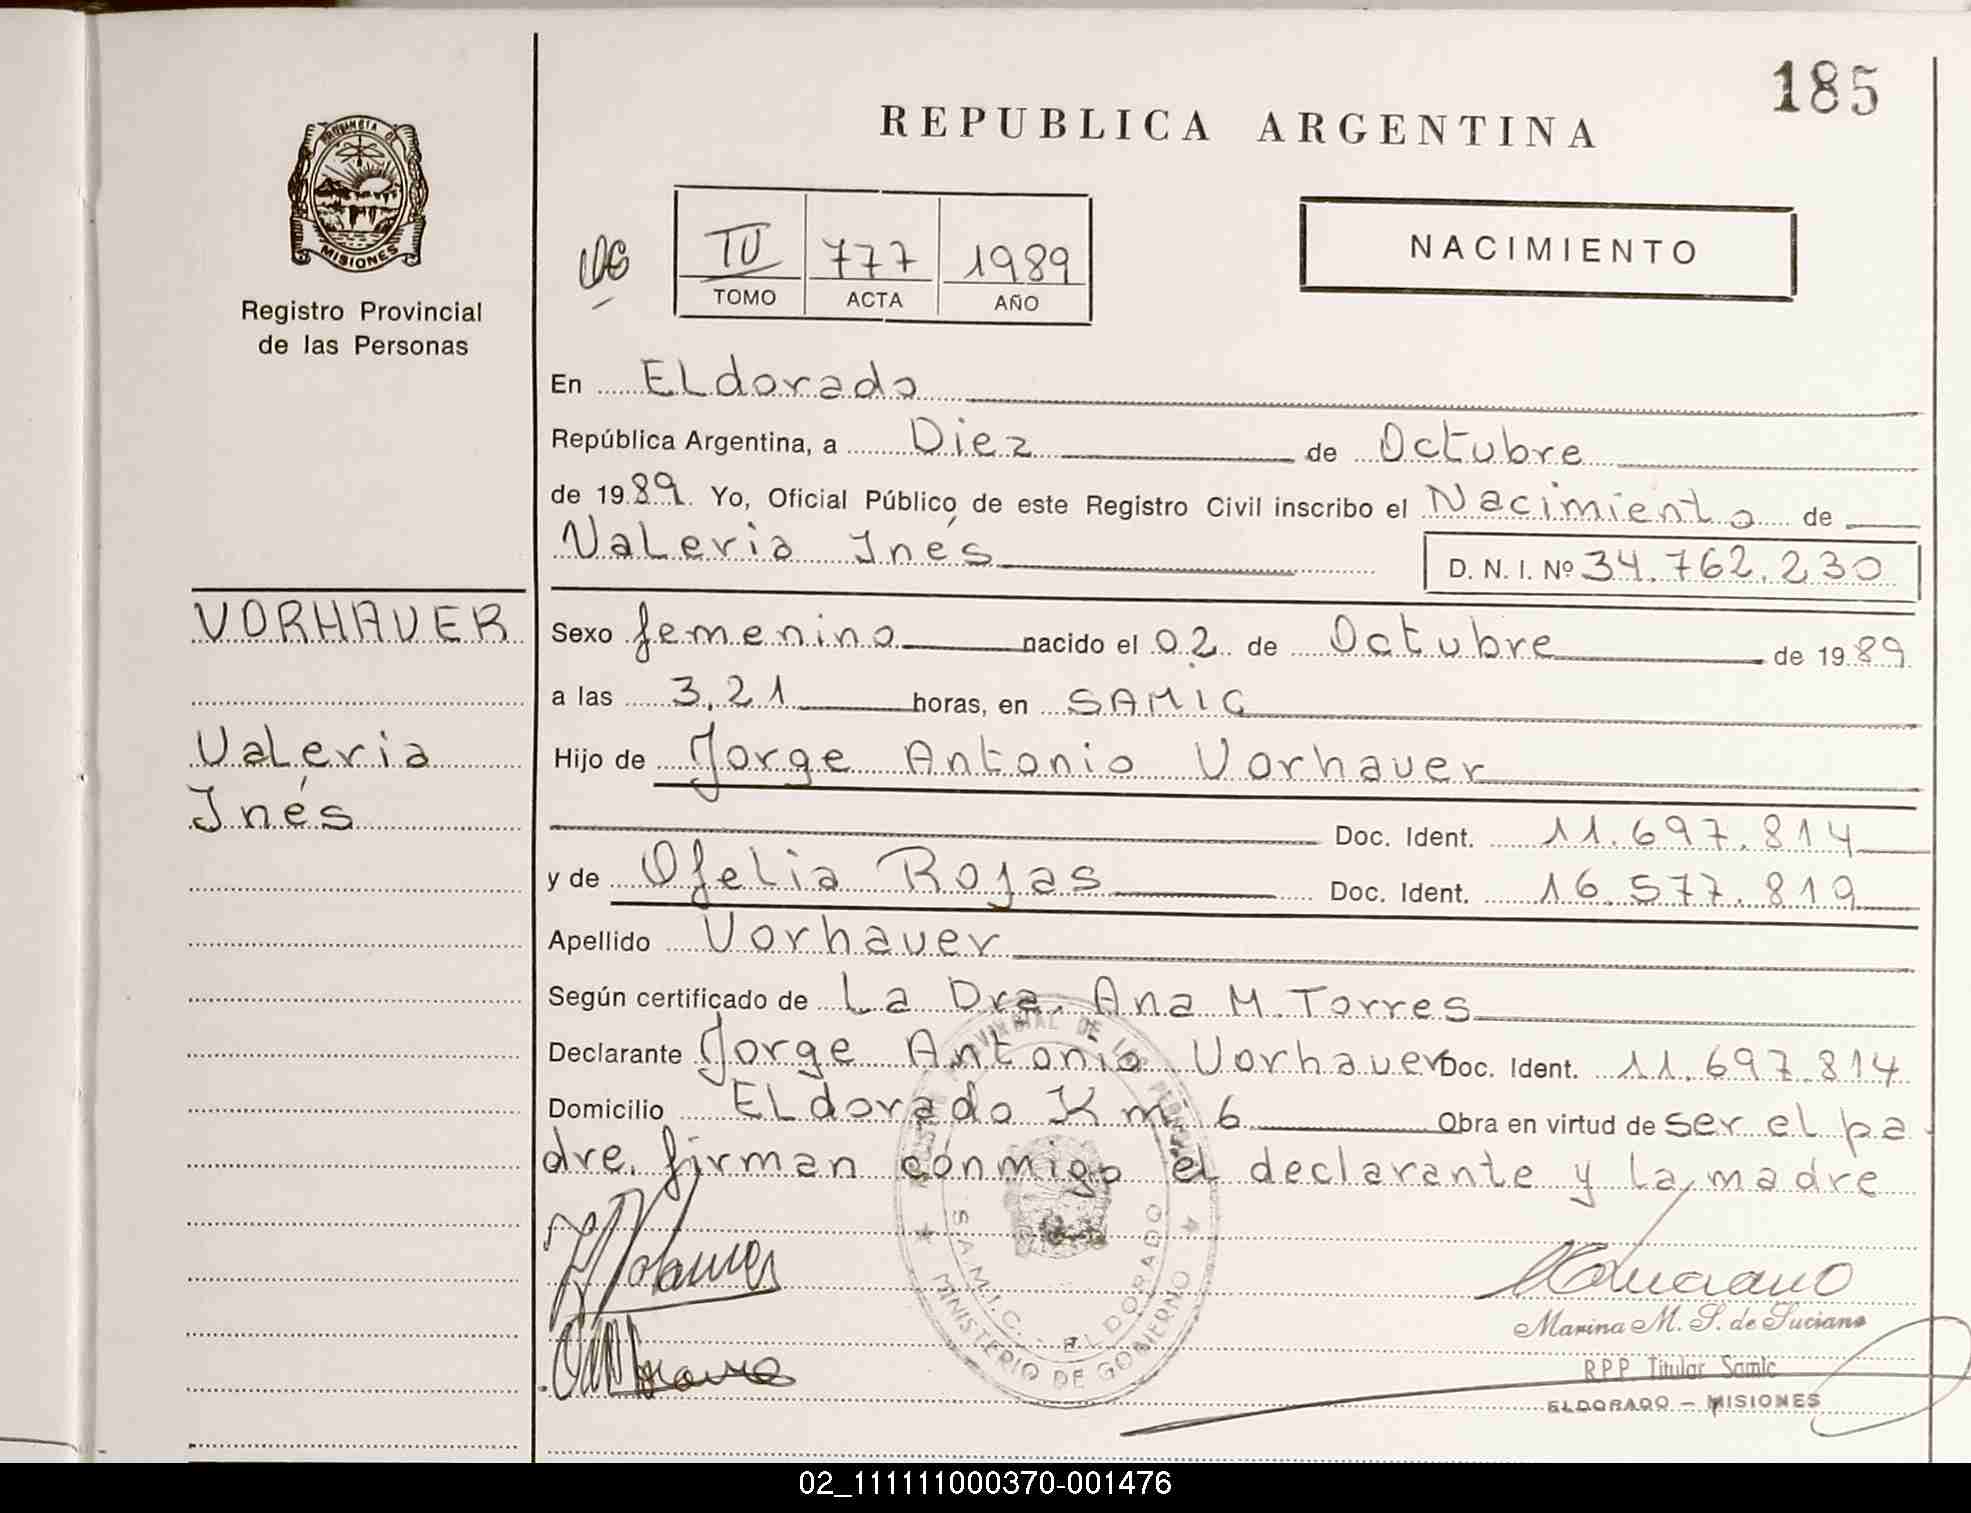 185
REPUBLICA ARGENTINA
PROVINCIA DE
MISIONES
Registro Provincial
de las Personas
TOMO ACTA AÑO
777 1989
NACIMIENTO
En ELdorado
República Argentina, a Diez de Octubre
de 1989. Yo, Oficial Público de este Registro Civil inscribo el Nacimiento de
VaLeria Inés D. N. I. Nº 34.762.230
VORHAUER
VaLeria
Inés
Sexo femenino nacido el 02 de Octubre de 1989
a las 3,21 horas, en SAMIC
Hijo de Jorge Antonio Vorhauer
Doc. Ident. 11.697.814
y de OfeLia Rojas Doc. Ident. 16.577.819
Apellido Vorhauer
Según certificado de La Dra. Ana M. Torres
Declarante Jorge Antonio Vorhauer Doc. Ident. 11.697.814
Domicilio ELdorado Km 6 Obra en virtud de ser el pa
dre. firman conmigo el declarante y La madre
PROVINCIAL DE LAS PERSONAS
S.A.M.I.C. - ELDORADO
MINISTERIO DE GOBIERNO
Marina M. S. de Luciano
RPP Titular Samic
ELDORADO - MISIONES
02_111111000370-001476